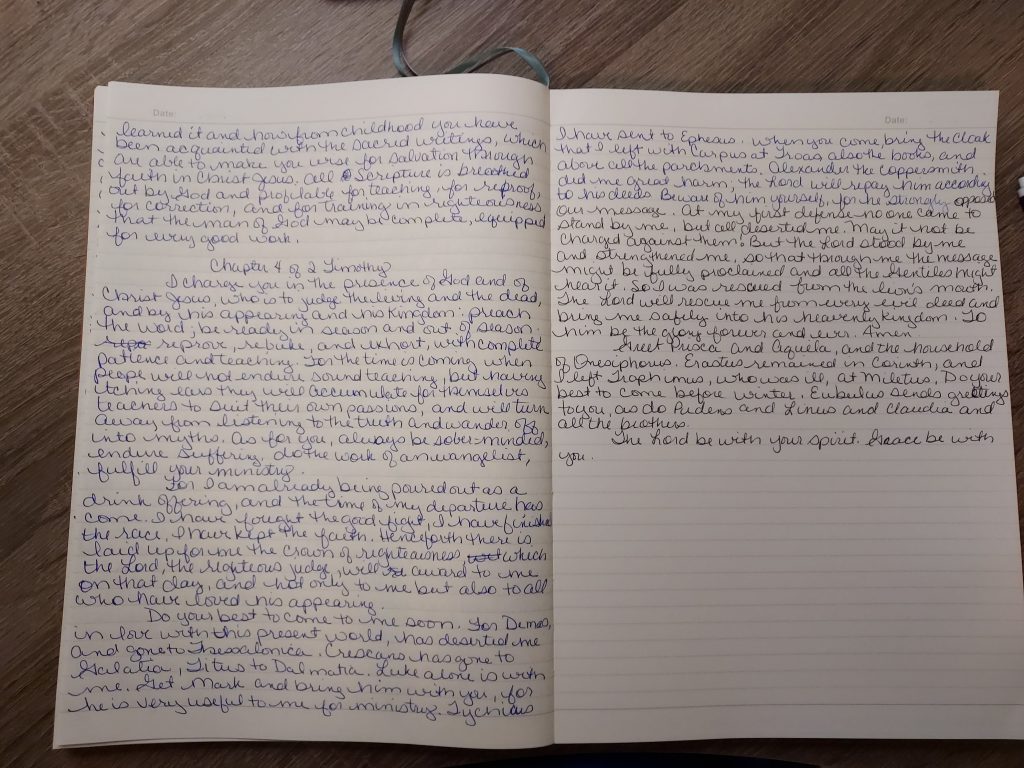 Date:
learned it and how from childhood you have
been acquainted with the sacred writings, which
are able to make you wise for salvation through
faith in Christ Jesus. All Scripture is breathed
out by God and profitable for teaching, for reproof,
for correction, and for training in righteousness
that the man of God may be complete, equipped
for every good work.
Chapter 4 of 2 Timothy
I charge you in the presence of God and of
Christ Jesus, who is to judge the living and the dead,
and by his appearing and his kingdom: preach
the word; be ready in season and out of season;
reprove, rebuke, and exhort, with complete
patience and teaching. For the time is coming when
people will not endure sound teaching, but having
itching ears they will accumulate for themselves
teachers to suit their own passions, and will turn
away from listening to the truth and wander off
into myths. As for you, always be sober-minded,
endure suffering, do the work of an evangelist,
fulfill your ministry.
For I am already being poured out as a
drink offering, and the time of my departure has
come. I have fought the good fight, I have finished
the race, I have kept the faith. Henceforth there is
laid up for me the crown of righteousness, which
the Lord, the righteous judge, will award to me
on that day, and not only to me but also to all
who have loved his appearing.
Do your best to come to me soon. For Demas,
in love with this present world, has deserted me
and gone to Thessalonica. Crescans has gone to
Galatia, Titus to Dalmatia. Luke alone is with
me. Get Mark and bring him with you, for
he is very useful to me for ministry. Tychius
Date:
I have sent to Ephesus. When you come, bring the cloak
that I left with Carpus at Troas, also the books, and
above all the parchments. Alexander the coppersmith
did me great harm; the Lord will repay him according
to his deeds. Beware of him yourself, for he strongly opposed
our message. At my first defense no one came to
stand by me, but all deserted me. May it not be
charged against them! But the Lord stood by me
and strengthened me, so that through me the message
might be fully proclaimed and all the Gentiles might
hear it. So I was rescued from the lion's mouth.
The Lord will rescue me from every evil deed and
bring me safely into his heavenly kingdom. To
him be the glory forever and ever. Amen
Greet Prisca and Aquila, and the household
of Onesiphorus. Erastus remained in Corinth, and
I left Trophimus, who was ill, at Miletus. Do your
best to come before winter. Eubulus sends greetings
to you, as do Pudens and Linus and Claudia and
all the brothers.
The Lord be with your spirit. Grace be with
you.